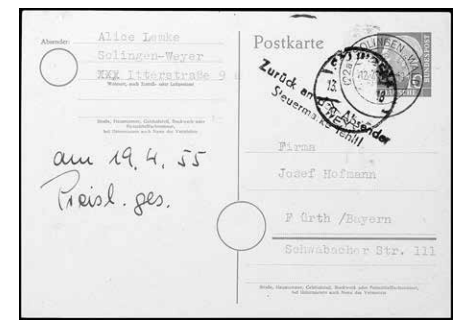 Absender:
Alice Lemke
Solingen-Weyer
XXX Itterstraße 9
Wohnort, auch Zustell- oder Leitpostamt
Straße, Hausnummer, Gebäudeteil, Stockwerk oder
Postschließfachnummer,
bei Untermietern auch Name des Vermieters
am 19. 4. 55
Preisl. ges.
Postkarte
SOLINGEN-WA
BUNDESPOST
Zurück an Absender
Steuermarke fehlt!
Firma
Josef Hofmann
Fürth /Bayern
Schwabacher Str. 111
Straße, Hausnummer, Gebäudeteil, Stockwerk oder Postschließfachnummer,
bei Untermietern auch Name des Vermieters